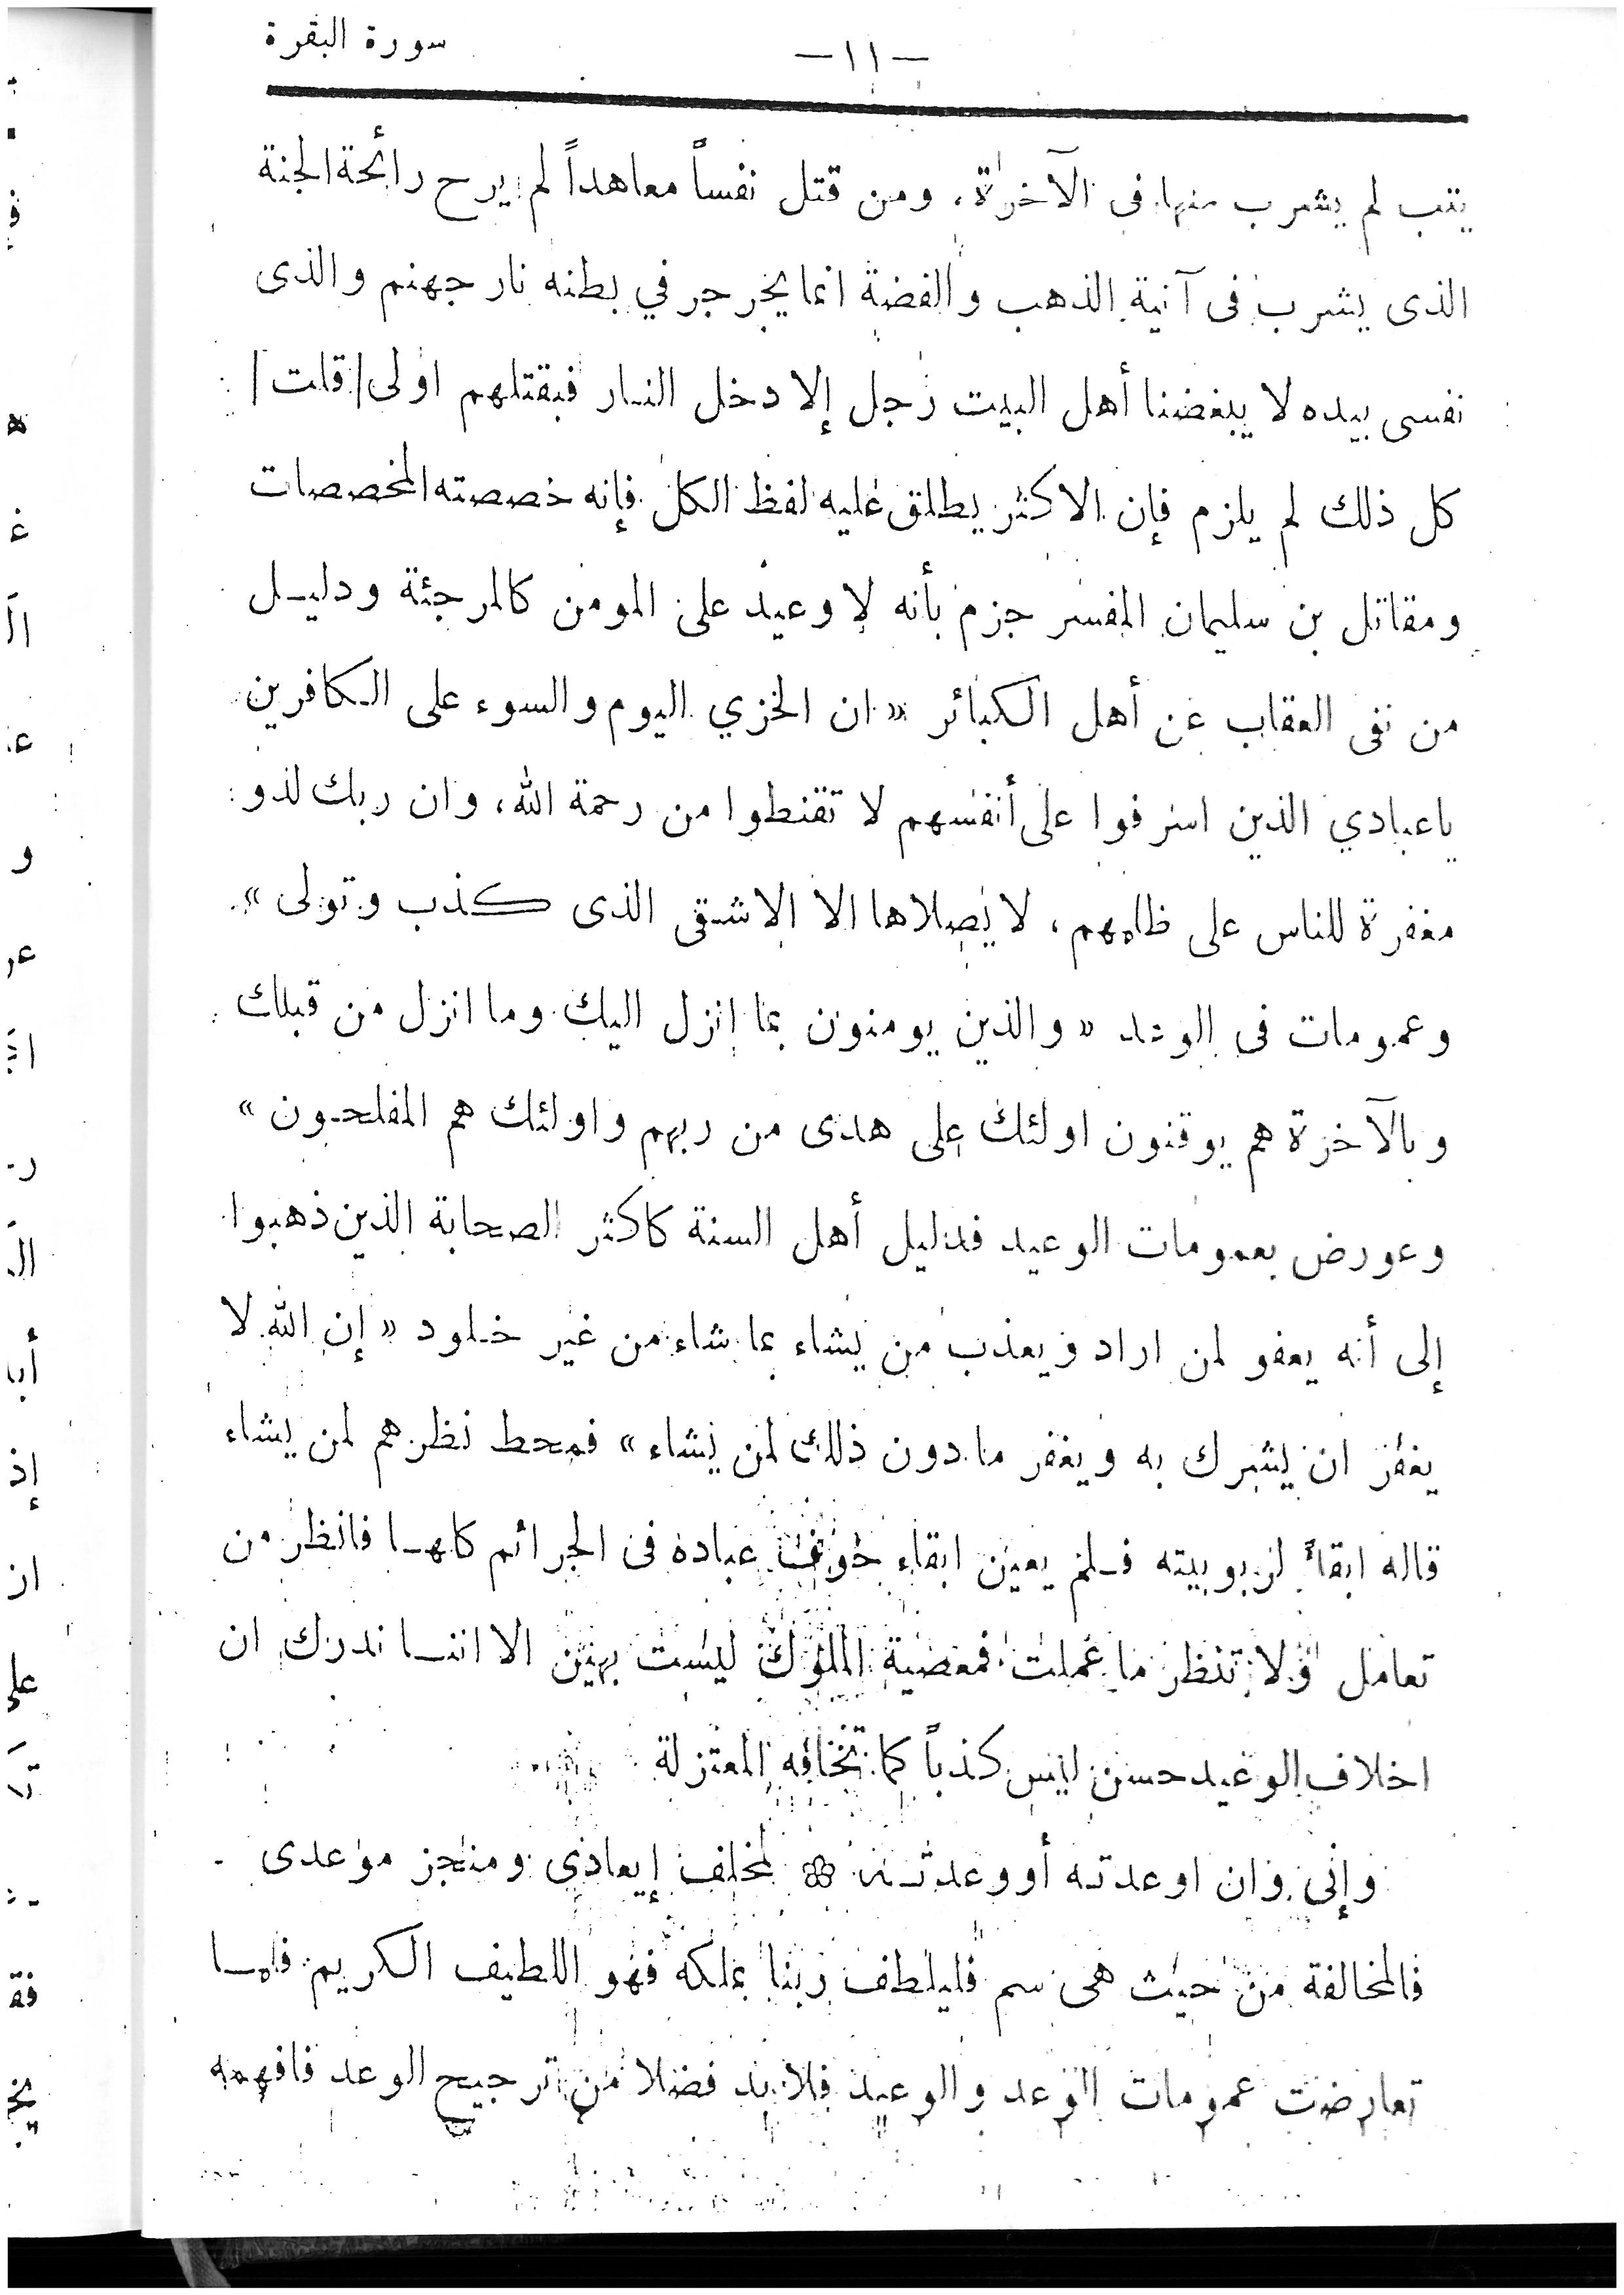 سورة البقرة
— ١١ —
يتب لم يشرب منها فى الآخرة، ومن قتل نفساً معاهداً لم يرح رائحة الجنة
الذى يشرب فى آنية الذهب والفضة انما يجرجر في بطنه نار جهنم والذى
نفسى بيده لا يبغضنا أهل البيت رجل إلا دخل النار فبقتلهم اولى / قلت /
كل ذلك لم يلزم فإن الاكثر يطلق عليه لفظ الكل فإنه خصصته المخصصات
ومقاتل بن سليمان المفسر جزم بأنه لا وعيد على المومن كالمرجئة ودليل
من نفى العقاب عن أهل الكبائر « ان الخزي اليوم والسوء على الكافرين
ياعبادي الذين اسرفوا على أنفسهم لا تقنطوا من رحمة الله، وان ربك لذو
مغفرة للناس على ظلمهم، لا يصلاها الا الاشقى الذى كذب وتولى »
وعمومات فى الوعد « والذين يومنون بما انزل اليك وما انزل من قبلك
وبالآخرة هم يوقنون اولئك على هدى من ربهم واولئك هم المفلحون »
وعورض بعمومات الوعيد فدليل أهل السنة كاكثر الصحابة الذين ذهبوا
إلى أنه يعفو لمن اراد ويعذب من يشاء بما شاء من غير خلود « إن الله لا
يغفر ان يشرك به ويغفر ما دون ذلك لمن يشاء » فمحط نظرهم لمن يشاء
قاله ابقاءً لربوبيته فلم يعين ابقاء خوف عباده فى الجرائم كلها فانظر من
تعامل ولا تنظر ما عملت فمعصية الملوك ليست بهين الا اننا ندرك ان
اخلاف الوعيد حسن ليس كذباً كما تخافه المعتزلة
وإنى وان اوعدته أو وعدته ❀ لمخلف إيعادي ومنجز موعدى
فالمخالفة من حيث هى سم فليلطف ربنا بملكه فهو اللطيف الكريم فلما
تعارضت عمومات الوعد والوعيد فلا بد فضلا من ترجيح الوعد فافهمه